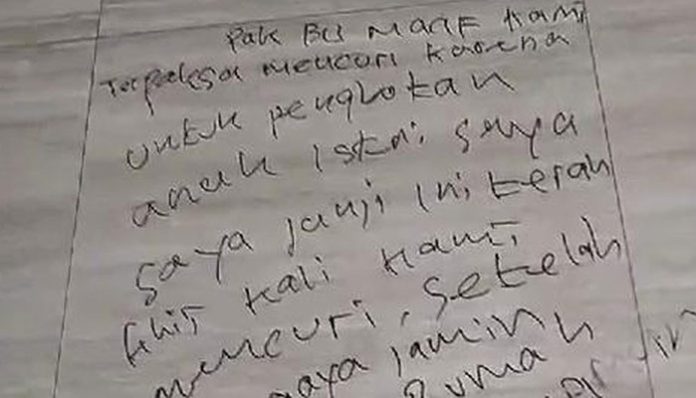 Pak BU MAAF KAMI
Terpaksa mencuri karena
untuk pengbotan
anak istri saya
saya janji ini terah
khir kali kami
mencuri, setelah
saya jamin
Rumah